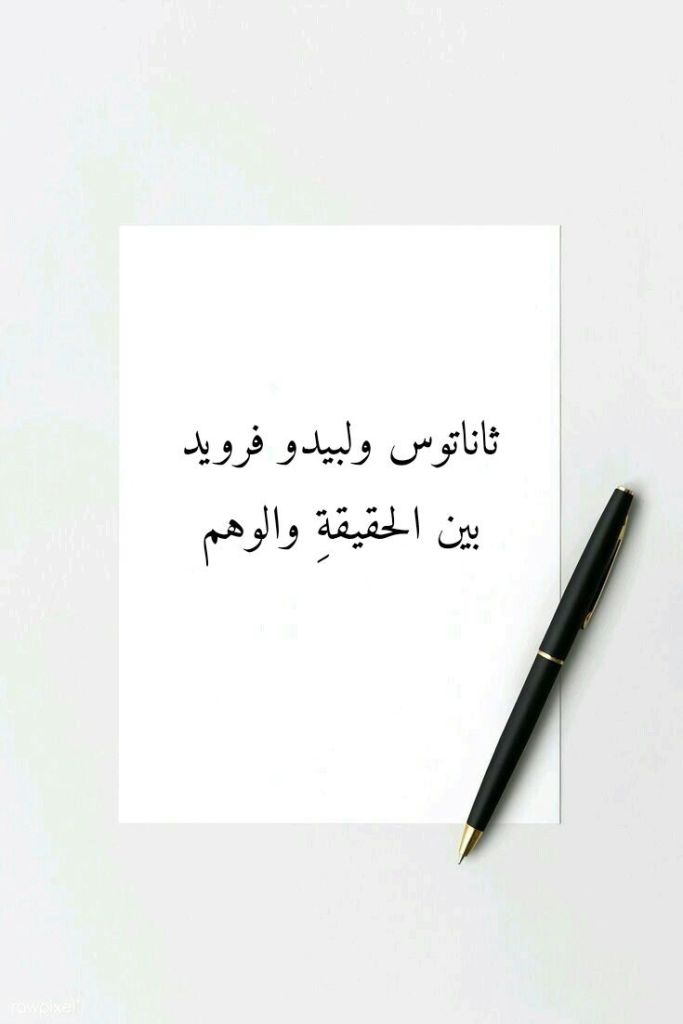 ثاناتوس ولبيدو فرويد
بين الحقيقةِ والوهم
rawpixel